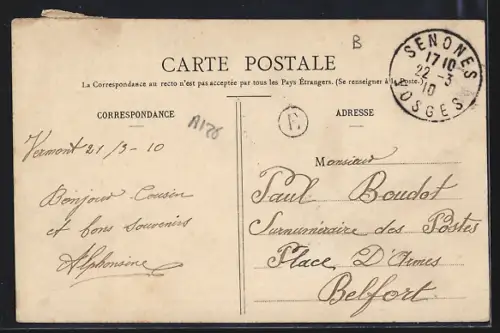 B
CARTE POSTALE
La Correspondance au recto n'est pas acceptée par tous les Pays Étrangers. (Se renseigner à la Poste.)
SENONES
17 10
22 - 3
10
VOSGES
CORRESPONDANCE
A126
E
ADRESSE
Vermont 21/3-10
Bonjour Cousin
et bons souvenirs
Alphonsine
Monsieur
Paul Boudot
Surnuméraire des Postes
Place D'Armes
Belfort